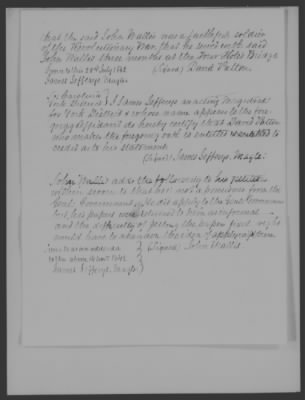 that the said John Wallis was a faithful soldier
of the Revolutionary War, that he served with said
John Wallis three months at the Four Holes Bridge
Sworn to this 28th July 1842 (Signed) David Patton
James Jefferys, Magte
So. Carolina }
York District } I James Jefferys an acting Magistrate
for York District & whose name appears to the fore-
going affidavit do hereby certify that David Patton
who makes the foregoing oath is entitled to
credit as to his statement
(Signed) James Jefferys. Magte.
John Wallis adds the following to his
written sworn to that he is not a pensioner from the
Genl. Government, He did apply to the Genl. Government
but his papers were returned to him as informal
and the difficulty of getting the papers fixed right
would have to abandon the idea of applying
Sworn to and } (Signed) John Wallis
1842 }
James Jefferys Magte }